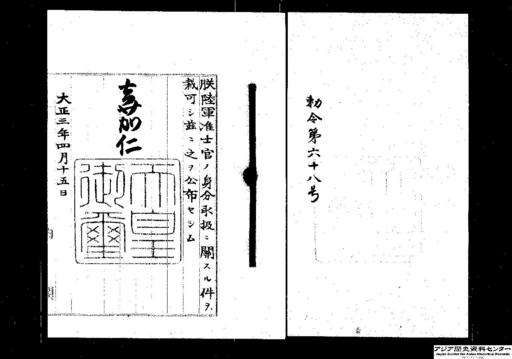 勅令第六十八号
朕陸軍准士官ノ身分取扱ニ關スル件ヲ
裁可シ茲ニ之ヲ公布セシム
嘉仁
天皇御璽
大正三年四月十五日
アジア歴史資料センター
Japan Center for Asian Historical Records